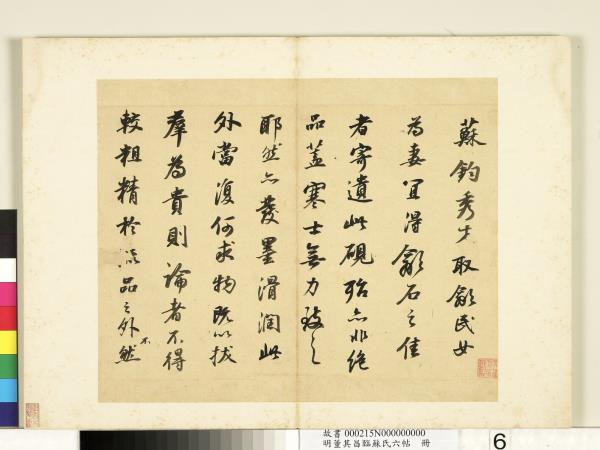 蘇鈞秀才取歙民女
為妻宜得歙石之佳
者寄遺此硯殆亦非絕
品蓋寒士無力致之
耶然亦發墨滑潤此
外當復何求物既以拔
羣為貴則論者不得
較粗精於品之外不然
故書 000215N000000000
明董其昌臨蘇氏六帖 冊
6